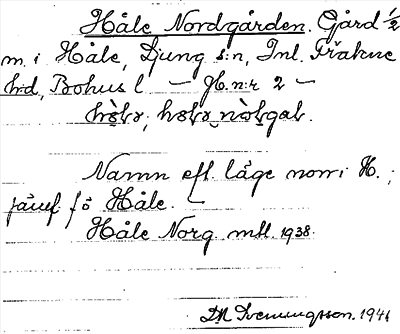 Håle Nordgården. Gård 1/2
m. i Håle, Ljung s:n, Inl. Fräkne
h:d, Bohus l — Jb. n:r 2 —
Namn eft. läge norr i H.;
jämf. fö Håle. —
Håle Norg. mtl. 1938.
DM Svenningsson. 1941